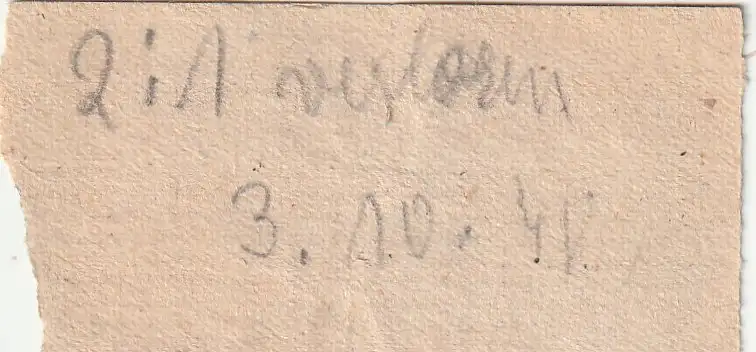 2:1 verloren
3.10.48